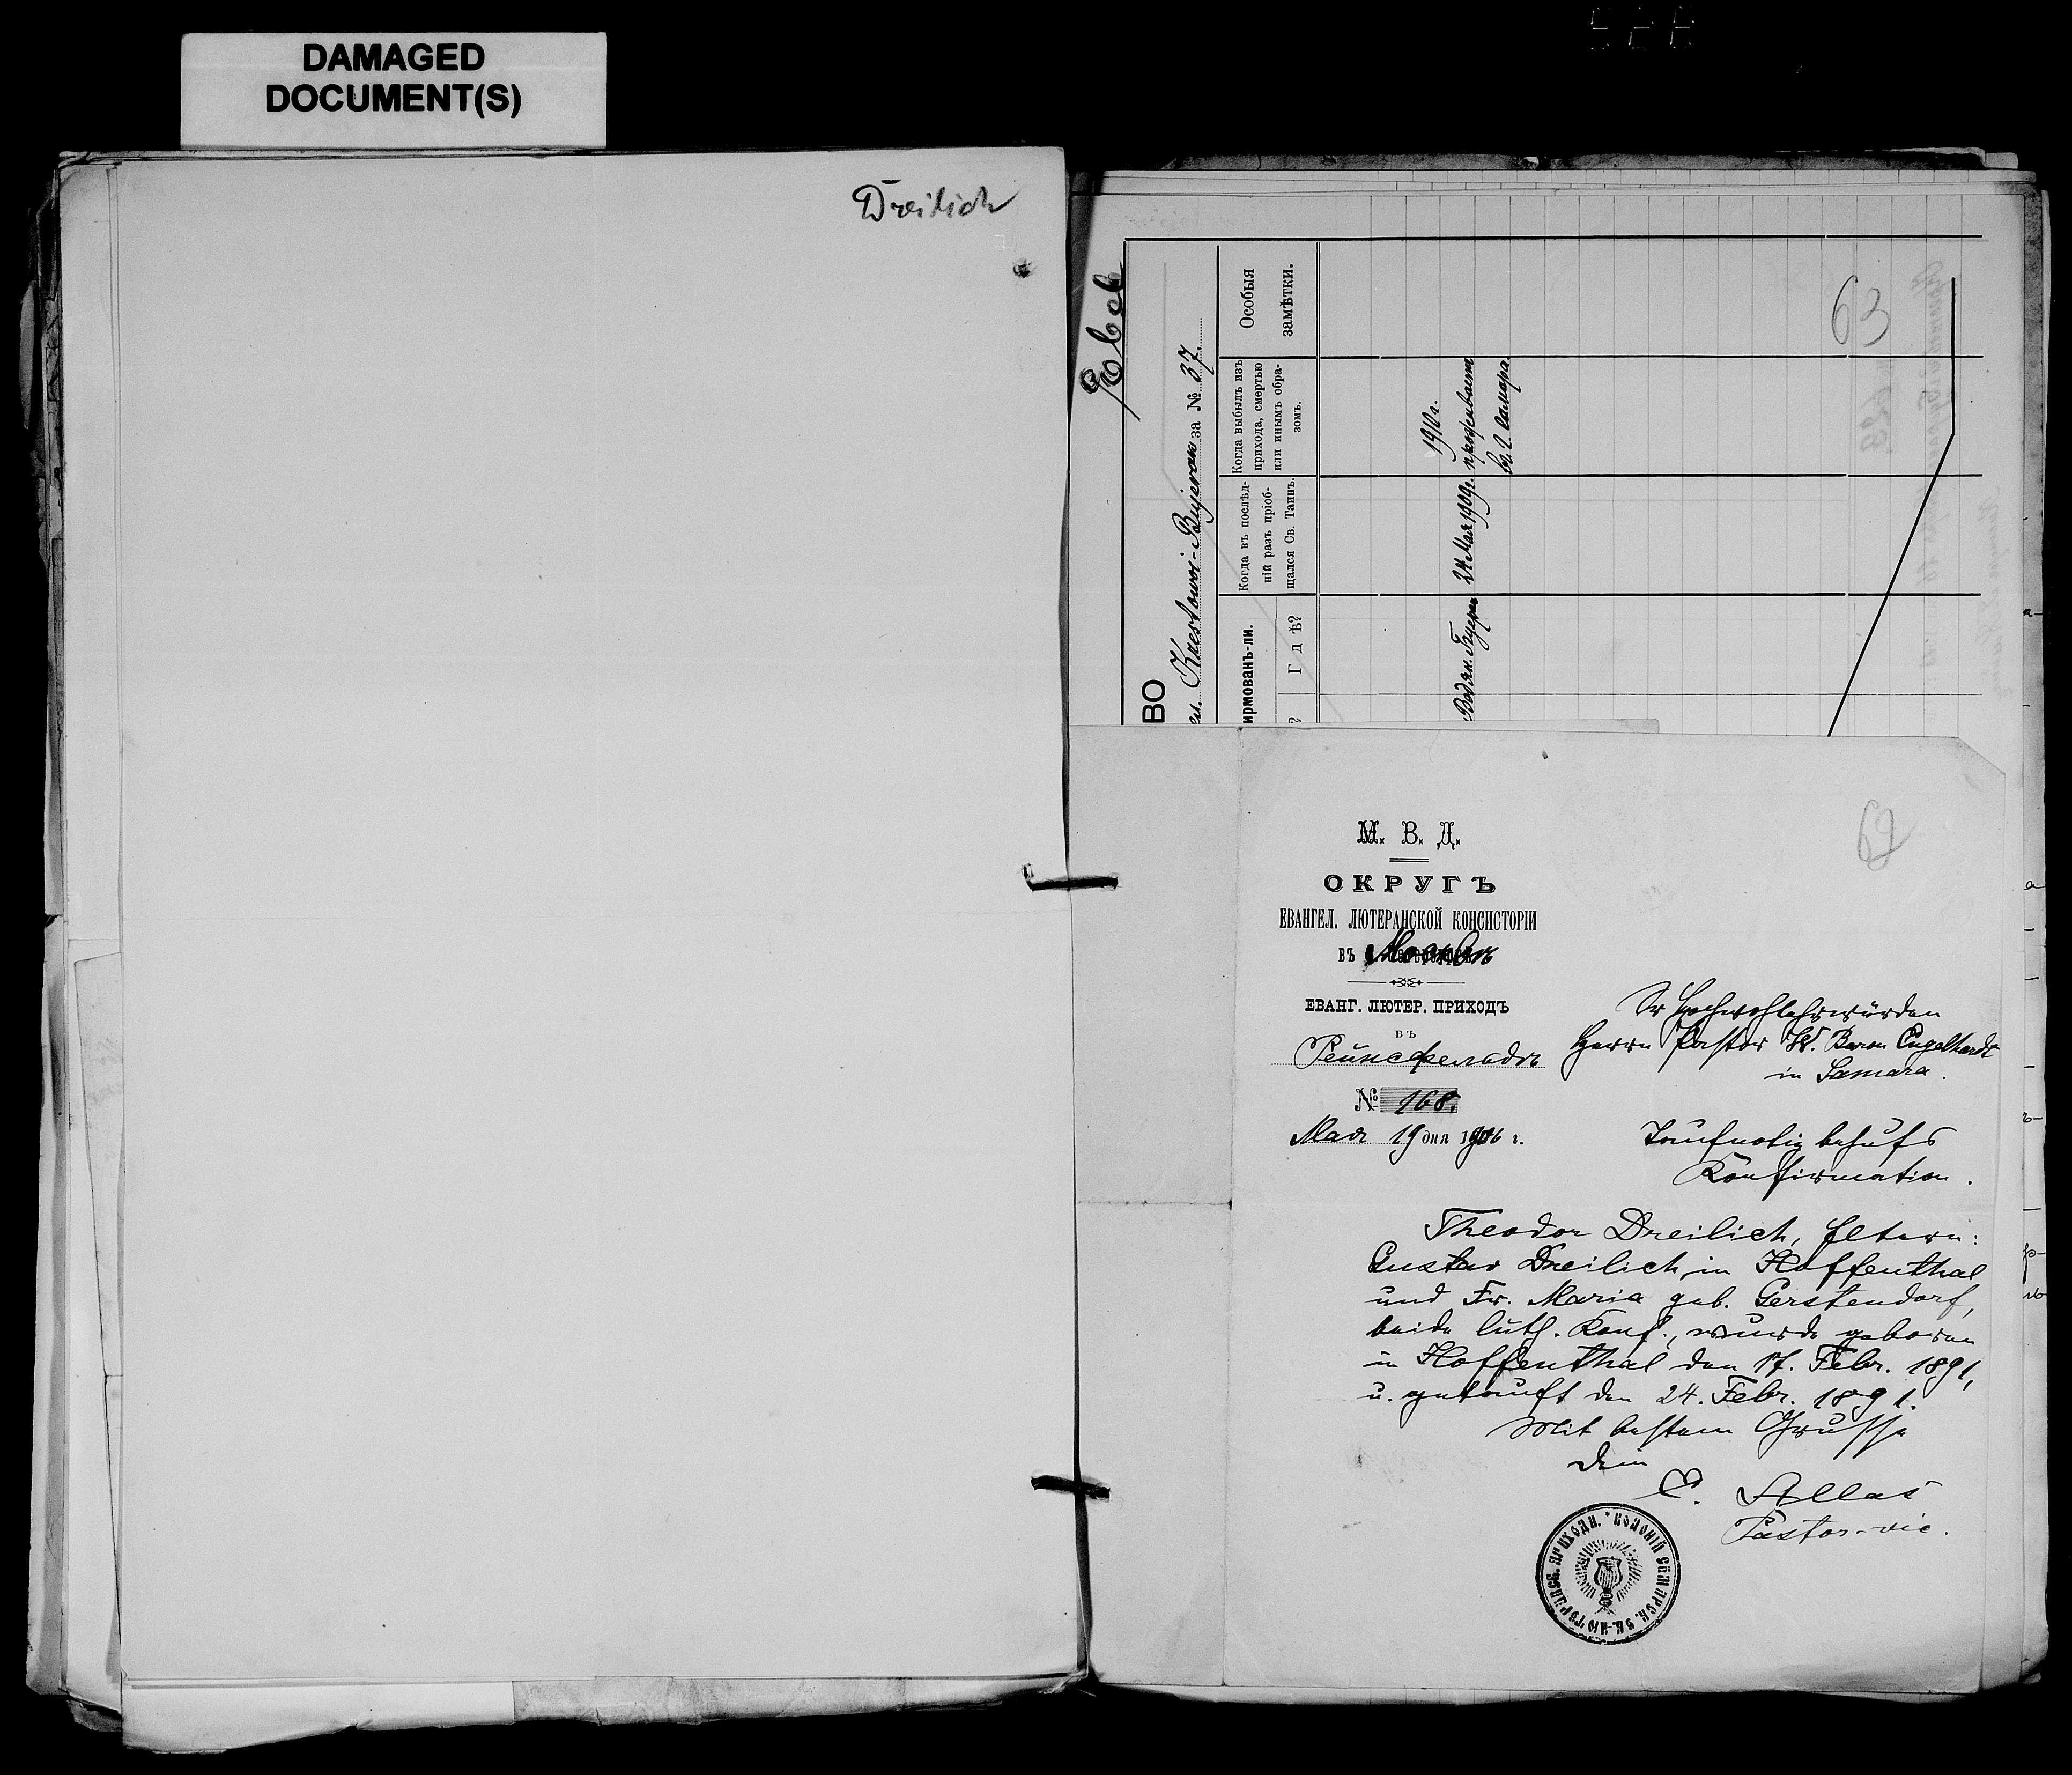 DAMAGED
DOCUMENT(S)
Dreilich
Ebel
ВО
Krestowoi-Bujerak за № 37.
ирмованъ-ли.
?
Г д ѣ?
Когда въ послѣд-
ній разъ пріоб-
щался Св. Таинъ.
Когда выбылъ изъ
прихода, смертью
или инымъ обра-
зомъ.
Особыя
замѣтки.
24 Мая 1909г.
1910г.
проживаетъ
въ г. Самара.
63
62
М. В. Д.
ОКРУГЪ
ЕВАНГЕЛ. ЛЮТЕРАНСКОЙ КОНСИСТОРІИ
въ Москвѣ
ЕВАНГ. ЛЮТЕР. ПРИХОДЪ
въ
Рейнсфельдъ
№ 168.
Мая 19 дня 1906 г.
Sr Hochwohlehrwürden
Herrn Pastor W. Baron Engelhardt
in Samara.
Taufnotiz behufs
Konfirmation.
Theodor Dreilich, Eltern:
Gustav Dreilich in Hoffenthal
und Fr. Maria geb. Gerstendorf,
beide luth. Konf., wurde geboren
in Hoffenthal den 17. Febr. 1891,
u. getauft den 24. Febr. 1891.
Mit bestem Grusse
Dein
P. Allas
Pastor-vic.